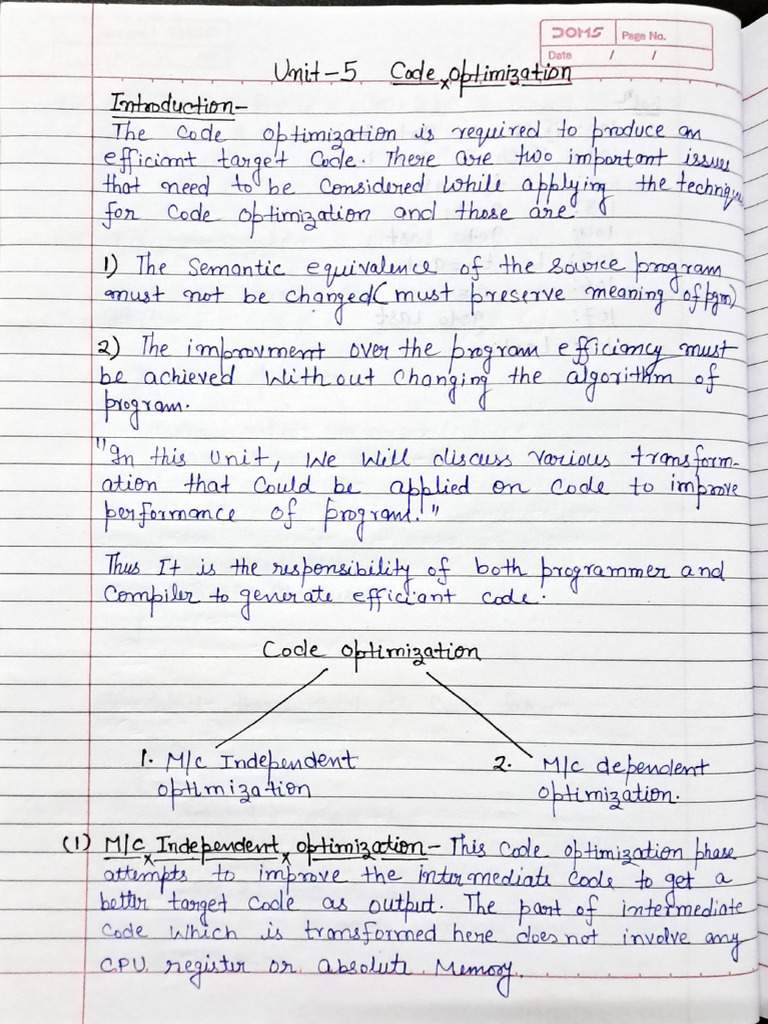 DOMS Page No.
Date / /
Unit-5 Code optimization
Introduction-
The Code optimization is required to produce an
efficiant target Code. There are two important issues
that need to be Considered While applying the technique
for Code optimization and those are
1) The Semantic equivalence of the source program
must not be changed (must preserve meaning of pgm)
2) The improvment over the program efficiency must
be achieved without changing the algorithm of
program.
"In this unit, We Will discuss various transform-
ation that Could be applied on Code to improve
performance of program."
Thus It is the responsibility of both programmer and
Compiler to generate efficiant code.
Code optimization
1. M/c Independent
optimization
2. M/c dependent
optimization.
(1) M/c Independent optimization- This Code optimization phase
attempts to improve the intermediate Code to get a
better target Code as output. The part of intermediate
Code which is transformed here does not involve any
CPU register or absolute Memory.